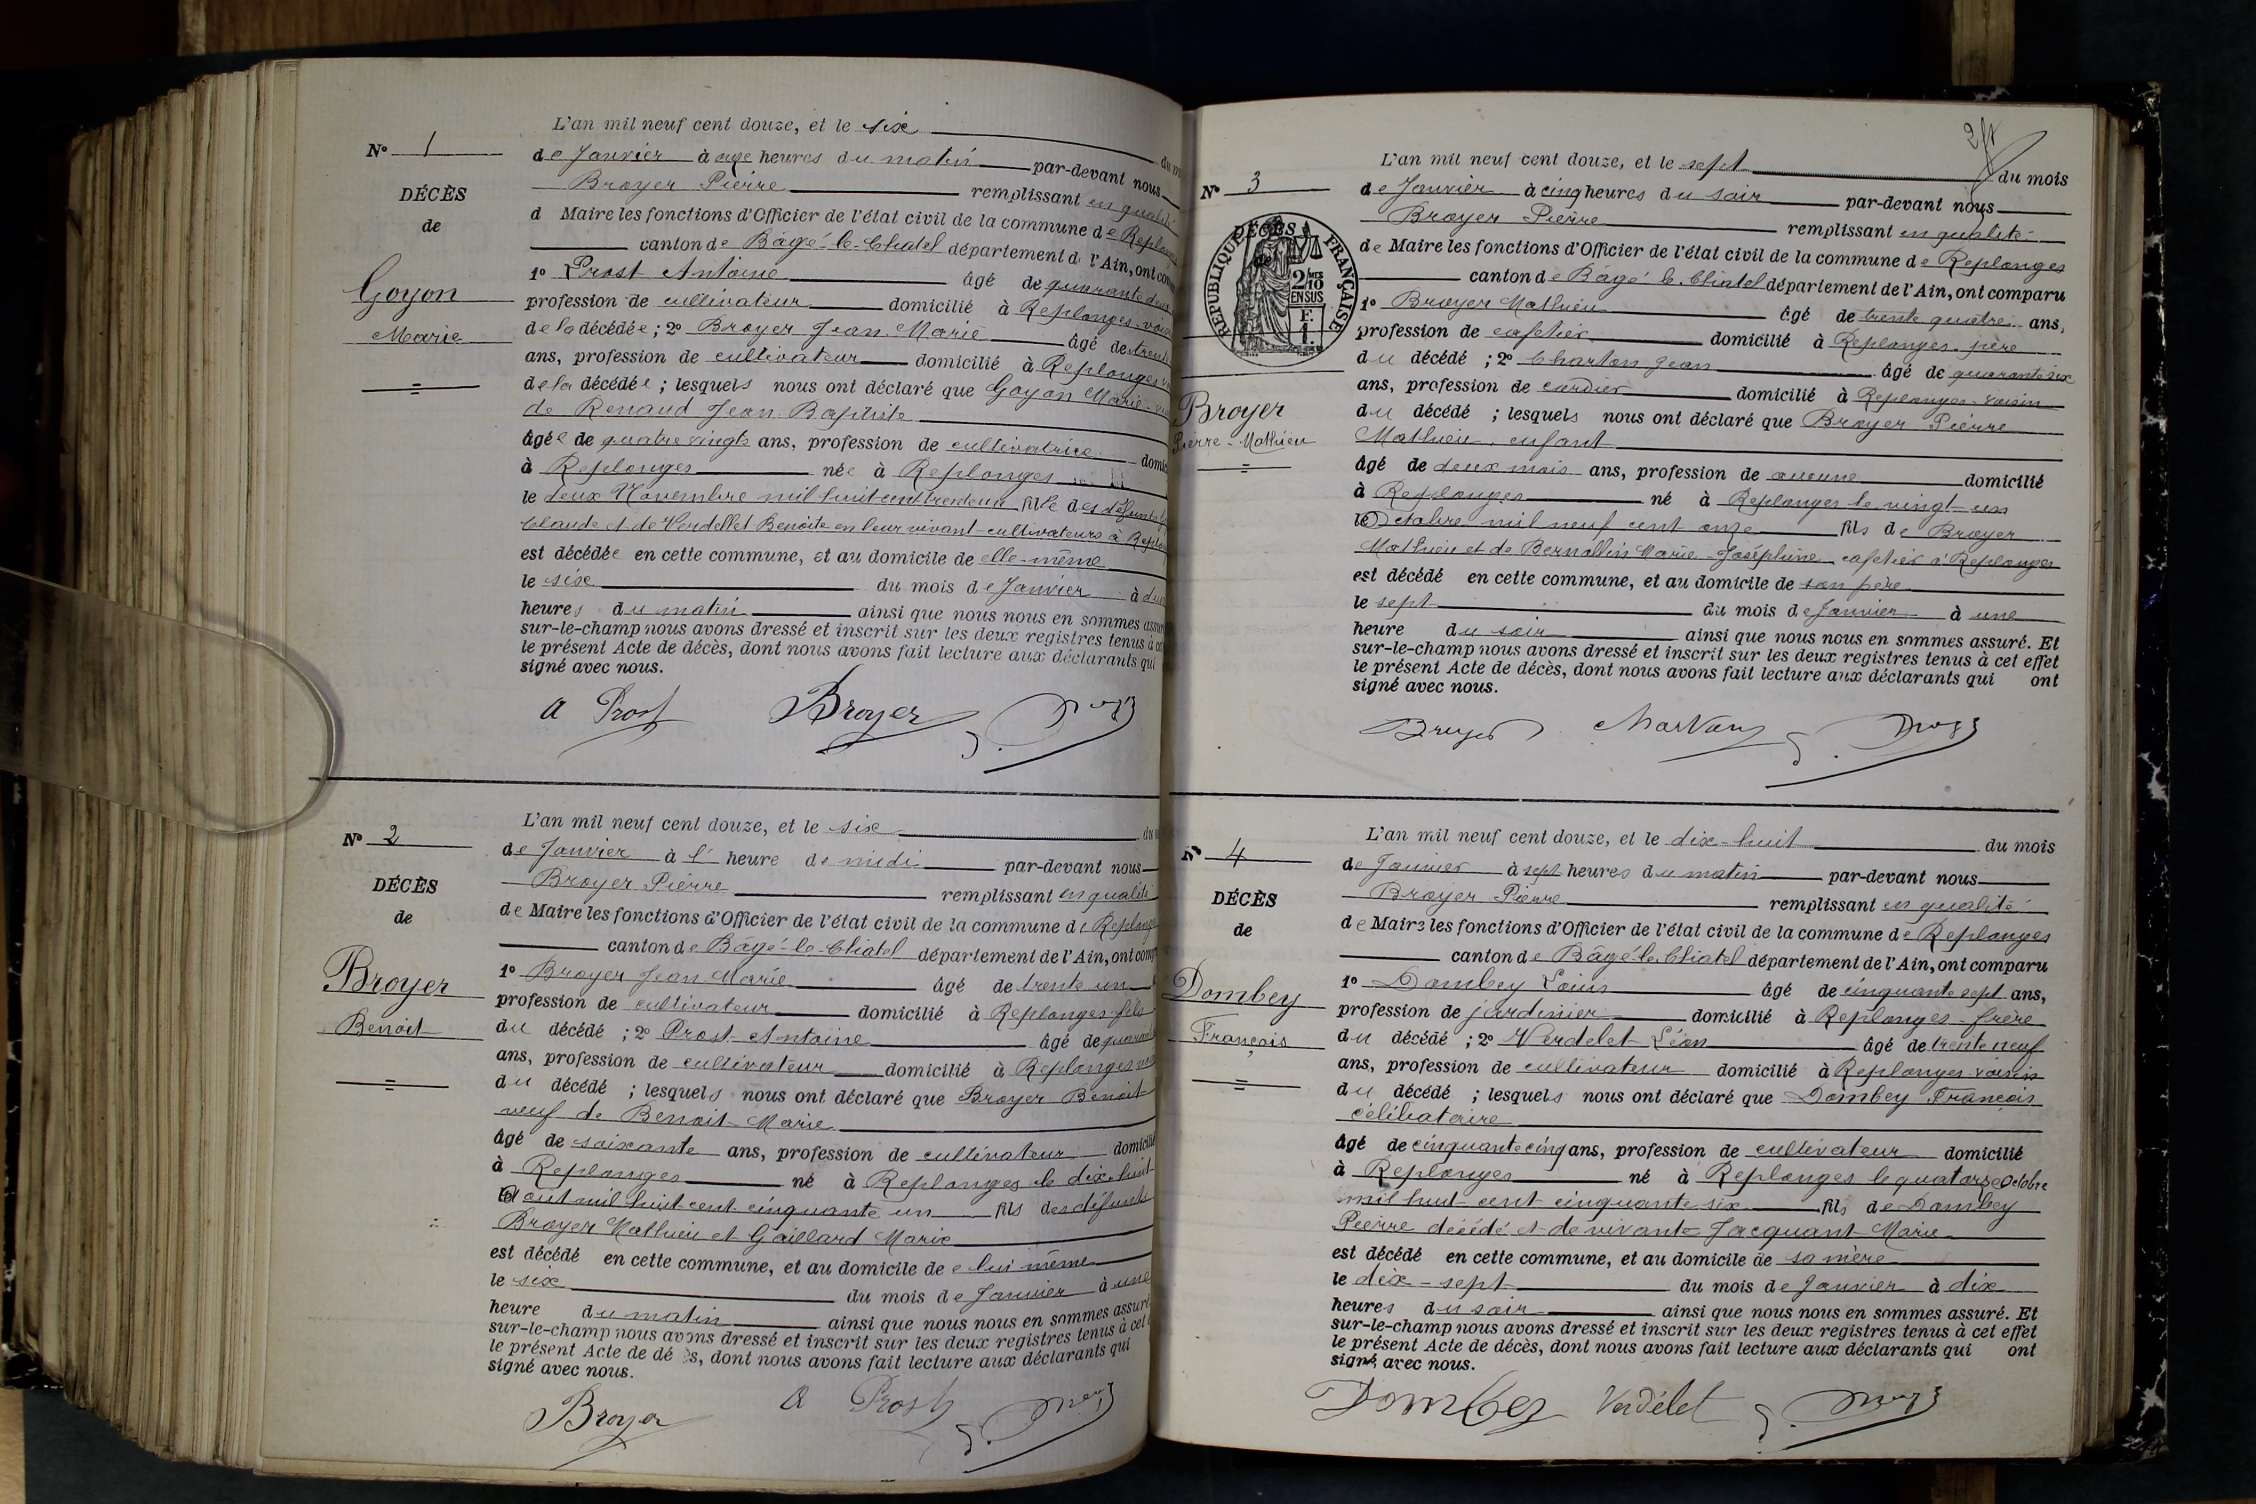 L'an mil neuf cent douze, et le six
N° 1
de Janvier à onze heures du matin par-devant nous
Broyer Pierre remplissant en qualité
DÉCÈS
d Maire les fonctions d'Officier de l'état civil de la commune de Replonges
de
canton de Bâgé-le-Châtel département de l'Ain, ont comp
1° Prost Antoine âgé de quarante deux
Goyon
profession de cultivateur domicilié à Replonges voisin
Marie
de la décédée ; 2° Broyer Jean Marie âgé de trente
ans, profession de cultivateur domicilié à Replonges
de la décédée ; lesquels nous ont déclaré que Goyon Marie
de Renaud Jean Baptiste
âgée de quatre vingts ans, profession de cultivatrice domic
à Replonges née à Replonges
le deux Novembre mil huit cent trente un fille des défunts
Claude et de Verdellet Benoite en leur vivant cultivateurs à Replon
est décédée en cette commune, et au domicile de elle-même
le six du mois de Janvier à
heures du matin ainsi que nous nous en sommes assuré
sur-le-champ nous avons dressé et inscrit sur les deux registres tenus à cet
le présent Acte de décès, dont nous avons fait lecture aux déclarants qui
signé avec nous.
A Prost Broyer
L'an mil neuf cent douze, et le six
N° 2
de Janvier à l' heure de midi par-devant nous
Broyer Pierre remplissant en qualité
DÉCÈS
de Maire les fonctions d'Officier de l'état civil de la commune de Replonges
de
canton de Bâgé-le-Châtel département de l'Ain, ont comp
1° Broyer Jean Marie âgé de trente un
Broyer
profession de cultivateur domicilié à Replonges fils
Benoit
du décédé ; 2° Prost Antoine âgé de quarante
ans, profession de cultivateur domicilié à Replonges
du décédé ; lesquels nous ont déclaré que Broyer Benoit
veuf de Benoit Marie
âgé de soixante ans, profession de cultivateur domicilié
à Replonges né à Replonges le dix-huit
août mil huit cent cinquante un fils des défunts
Broyer Mathieu et Gaillard Marie
est décédé en cette commune, et au domicile de lui même
le six du mois de Janvier à une
heure du matin ainsi que nous nous en sommes assuré
sur-le-champ nous avons dressé et inscrit sur les deux registres tenus à cet
le présent Acte de décès, dont nous avons fait lecture aux déclarants qui
signé avec nous.
Broyer A Prost
L'an mil neuf cent douze, et le sept du mois
N° 3
de Janvier à cinq heures du soir par-devant nous
Broyer Pierre remplissant en qualité
DÉCÈS
de
RÉPUBLIQUE FRANÇAISE
2/10 EN SUS
F. 1.
de Maire les fonctions d'Officier de l'état civil de la commune de Replonges
canton de Bâgé-le-Châtel département de l'Ain, ont comparu
1° Broyer Mathieu âgé de trente quatre ans,
profession de cafetier domicilié à Replonges père
du décédé ; 2° Charton Jean âgé de quarante six
ans, profession de cordier domicilié à Replonges voisin
Broyer
Pierre-Mathieu
du décédé ; lesquels nous ont déclaré que Broyer Pierre
Mathieu, enfant
âgé de deux mois ans, profession de aucune domicilié
à Replonges né à Replonges le vingt-un
le Octobre mil neuf cent onze fils de Broyer
Mathieu et de Bernollin Marie-Joséphine cafetier à Replonges
est décédé en cette commune, et au domicile de son père
le sept du mois de Janvier à une
heure du soir ainsi que nous nous en sommes assuré. Et
sur-le-champ nous avons dressé et inscrit sur les deux registres tenus à cet effet
le présent Acte de décès, dont nous avons fait lecture aux déclarants qui ont
signé avec nous.
Broyer
L'an mil neuf cent douze, et le dix-huit du mois
N° 4
de Janvier à sept heures du matin par-devant nous
Broyer Pierre remplissant en qualité
DÉCÈS
de Maire les fonctions d'Officier de l'état civil de la commune de Replonges
de
canton de Bâgé-le-Châtel département de l'Ain, ont comparu
1° Dombey Louis âgé de cinquante sept ans,
Dombey
profession de jardinier domicilié à Replonges frère
François
du décédé ; 2° Verdelet Léon âgé de trente neuf
ans, profession de cultivateur domicilié à Replonges voisin
du décédé ; lesquels nous ont déclaré que Dombey François
célibataire
âgé de cinquante cinq ans, profession de cultivateur domicilié
à Replonges né à Replonges le quatorze Octobre
mil huit cent cinquante six fils de Dombey
Pierre décédé et de vivante Jacquant Marie
est décédé en cette commune, et au domicile de sa mère
le dix-sept du mois de Janvier à dix
heures du soir ainsi que nous nous en sommes assuré. Et
sur-le-champ nous avons dressé et inscrit sur les deux registres tenus à cet effet
le présent Acte de décès, dont nous avons fait lecture aux déclarants qui ont
signé avec nous.
Dombey Verdélet